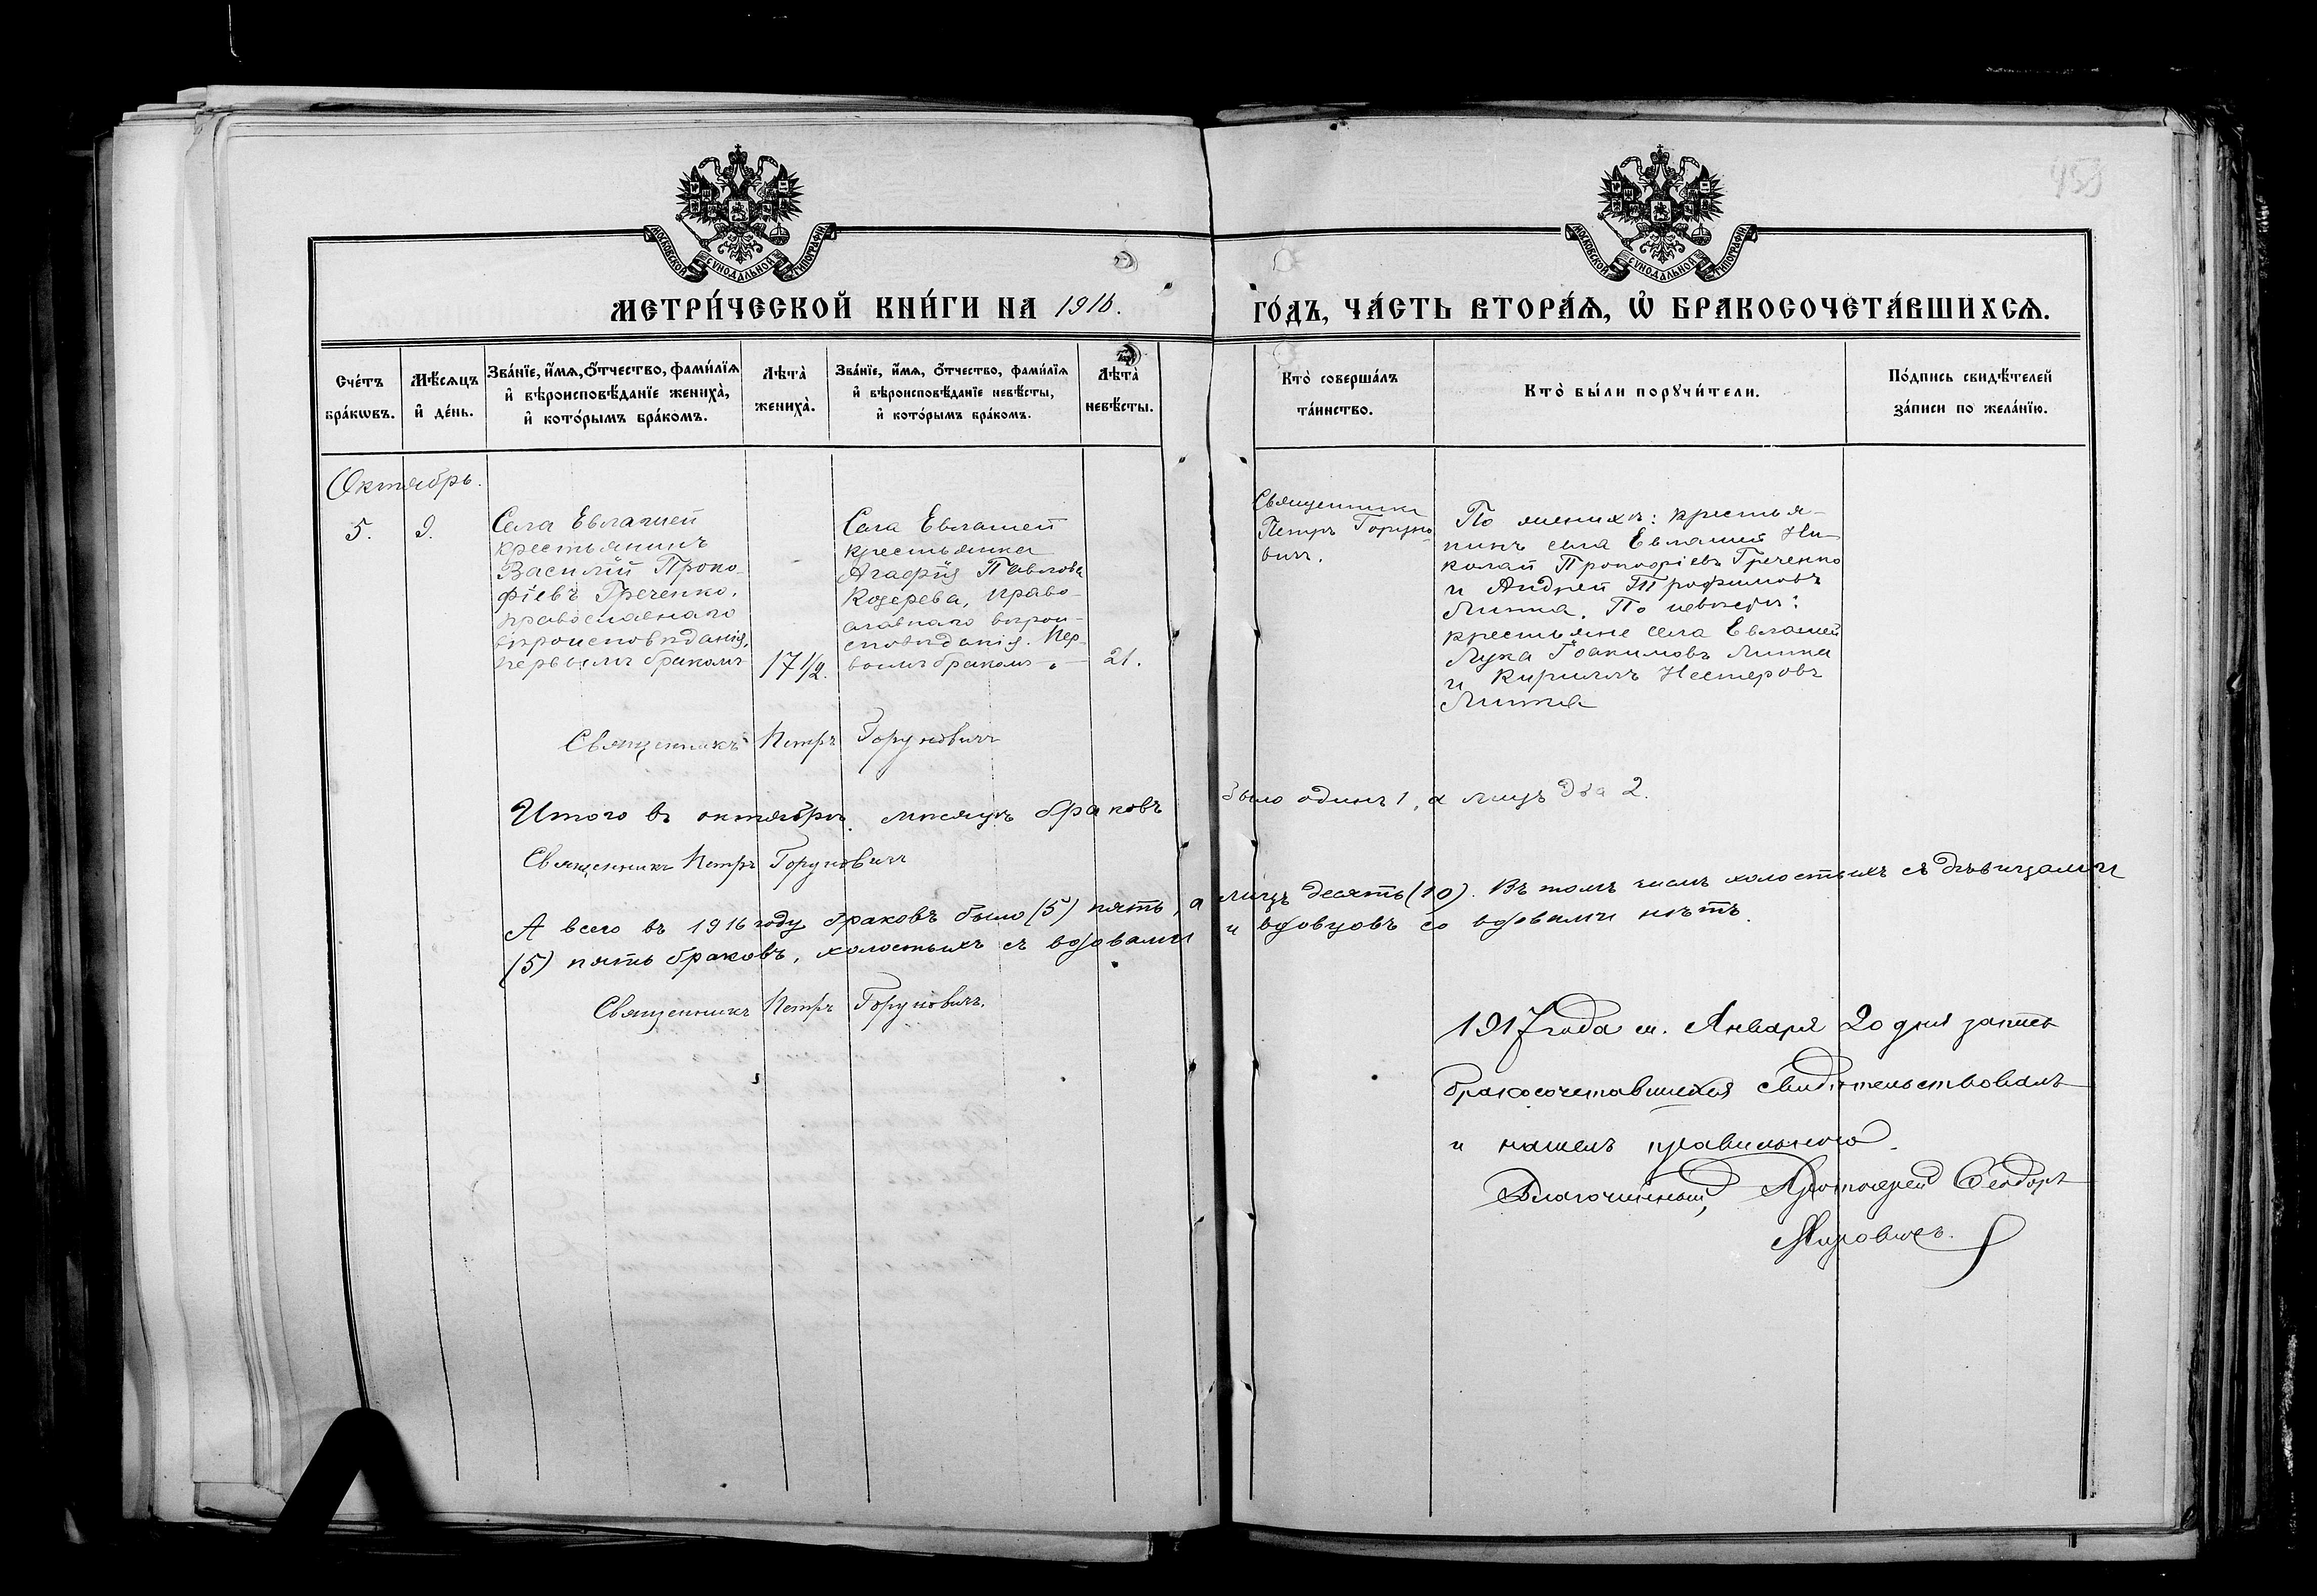 МОСКОВСКОЙ СѴНОДАЛЬНОЙ ТИПОГРАФІИ
МОСКОВСКОЙ СѴНОДАЛЬНОЙ ТИПОГРАФІИ
МЕТРИ́ЧЕСКОЙ КНИ́ГИ НА 1916.
ГО́ДЪ, ЧА́СТЬ ВТОРА́Ѧ, Ѽ БРАКОСОЧЕТА́ВШИХСѦ.
Сче́тъ бра́кѡвъ.
Мѣ́сяцъ и҆ де́нь.
Зва́нїе, и҆́мѧ, ѻ҆́тчество, фами́лїѧ и҆ вѣроисповѣ́данїе жениха̀, и҆ кото́рымъ бра́комъ.
Лѣта̀ жениха̀.
Зва́нїе, и҆́мѧ, ѻ҆́тчество, фами́лїѧ и҆ вѣроисповѣ́данїе невѣ́сты, и҆ кото́рымъ бра́комъ.
Лѣта̀ невѣ́сты.
Кто̀ соверша́лъ та́инство.
Кто̀ бы́ли порꙋчи́тели.
По́дпись свидѣ́телей за́писи по жела́нїю.
Октябрь.
5.
9.
Села Евлашей
крестьянинъ
Василій Проко-
фіевъ Греченко,
православнаго
вѣроисповѣданія,
первымъ бракомъ
17 1/2.
Села Евлашей
крестьянка
Агафія Павлова
Козерева, право-
славнаго вѣрои-
сповѣданія. Пер-
вымъ бракомъ
21.
Священникъ
Петръ Горуно-
вичъ.
По женихѣ: крестья-
нинъ села Евлашей Ни-
колай Прокофіевъ Греченко
и Андрей Трофимовъ
Литка. По невѣстѣ:
крестьяне села Евлашей
Лука Іоакимовъ Литка
и Кириллъ Нестеровъ
Литка
Священникъ Петръ Горуновичъ
Итого въ октябрѣ мѣсяцѣ браковъ было одинъ 1, а лицъ два 2.
Священникъ Петръ Горуновичъ
А всего въ 1916 году браковъ было (5) пять, а лицъ десять (10). Въ томъ числѣ холостыхъ съ дѣвицами
(5) пять браковъ, холостыхъ съ вдовами и вдовцовъ со вдовами нѣтъ.
Священникъ Петръ Горуновичъ.
1917 года м. Января 20 дня запись
бракосочетавшихся свидѣтельствовалъ
и нашелъ правильною.
Благочинный, Протоіерей Ѳеодоръ